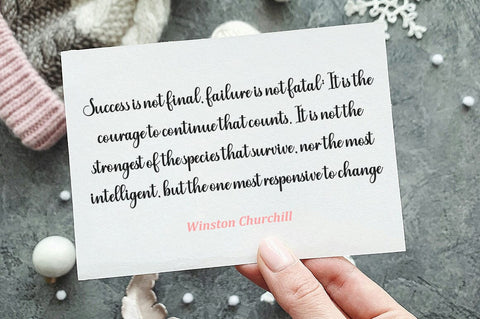 Success is not final, failure is not fatal: It is the
courage to continue that counts. It is not the
strongest of the species that survive, nor the most
intelligent, but the one most responsive to change
Winston Churchill